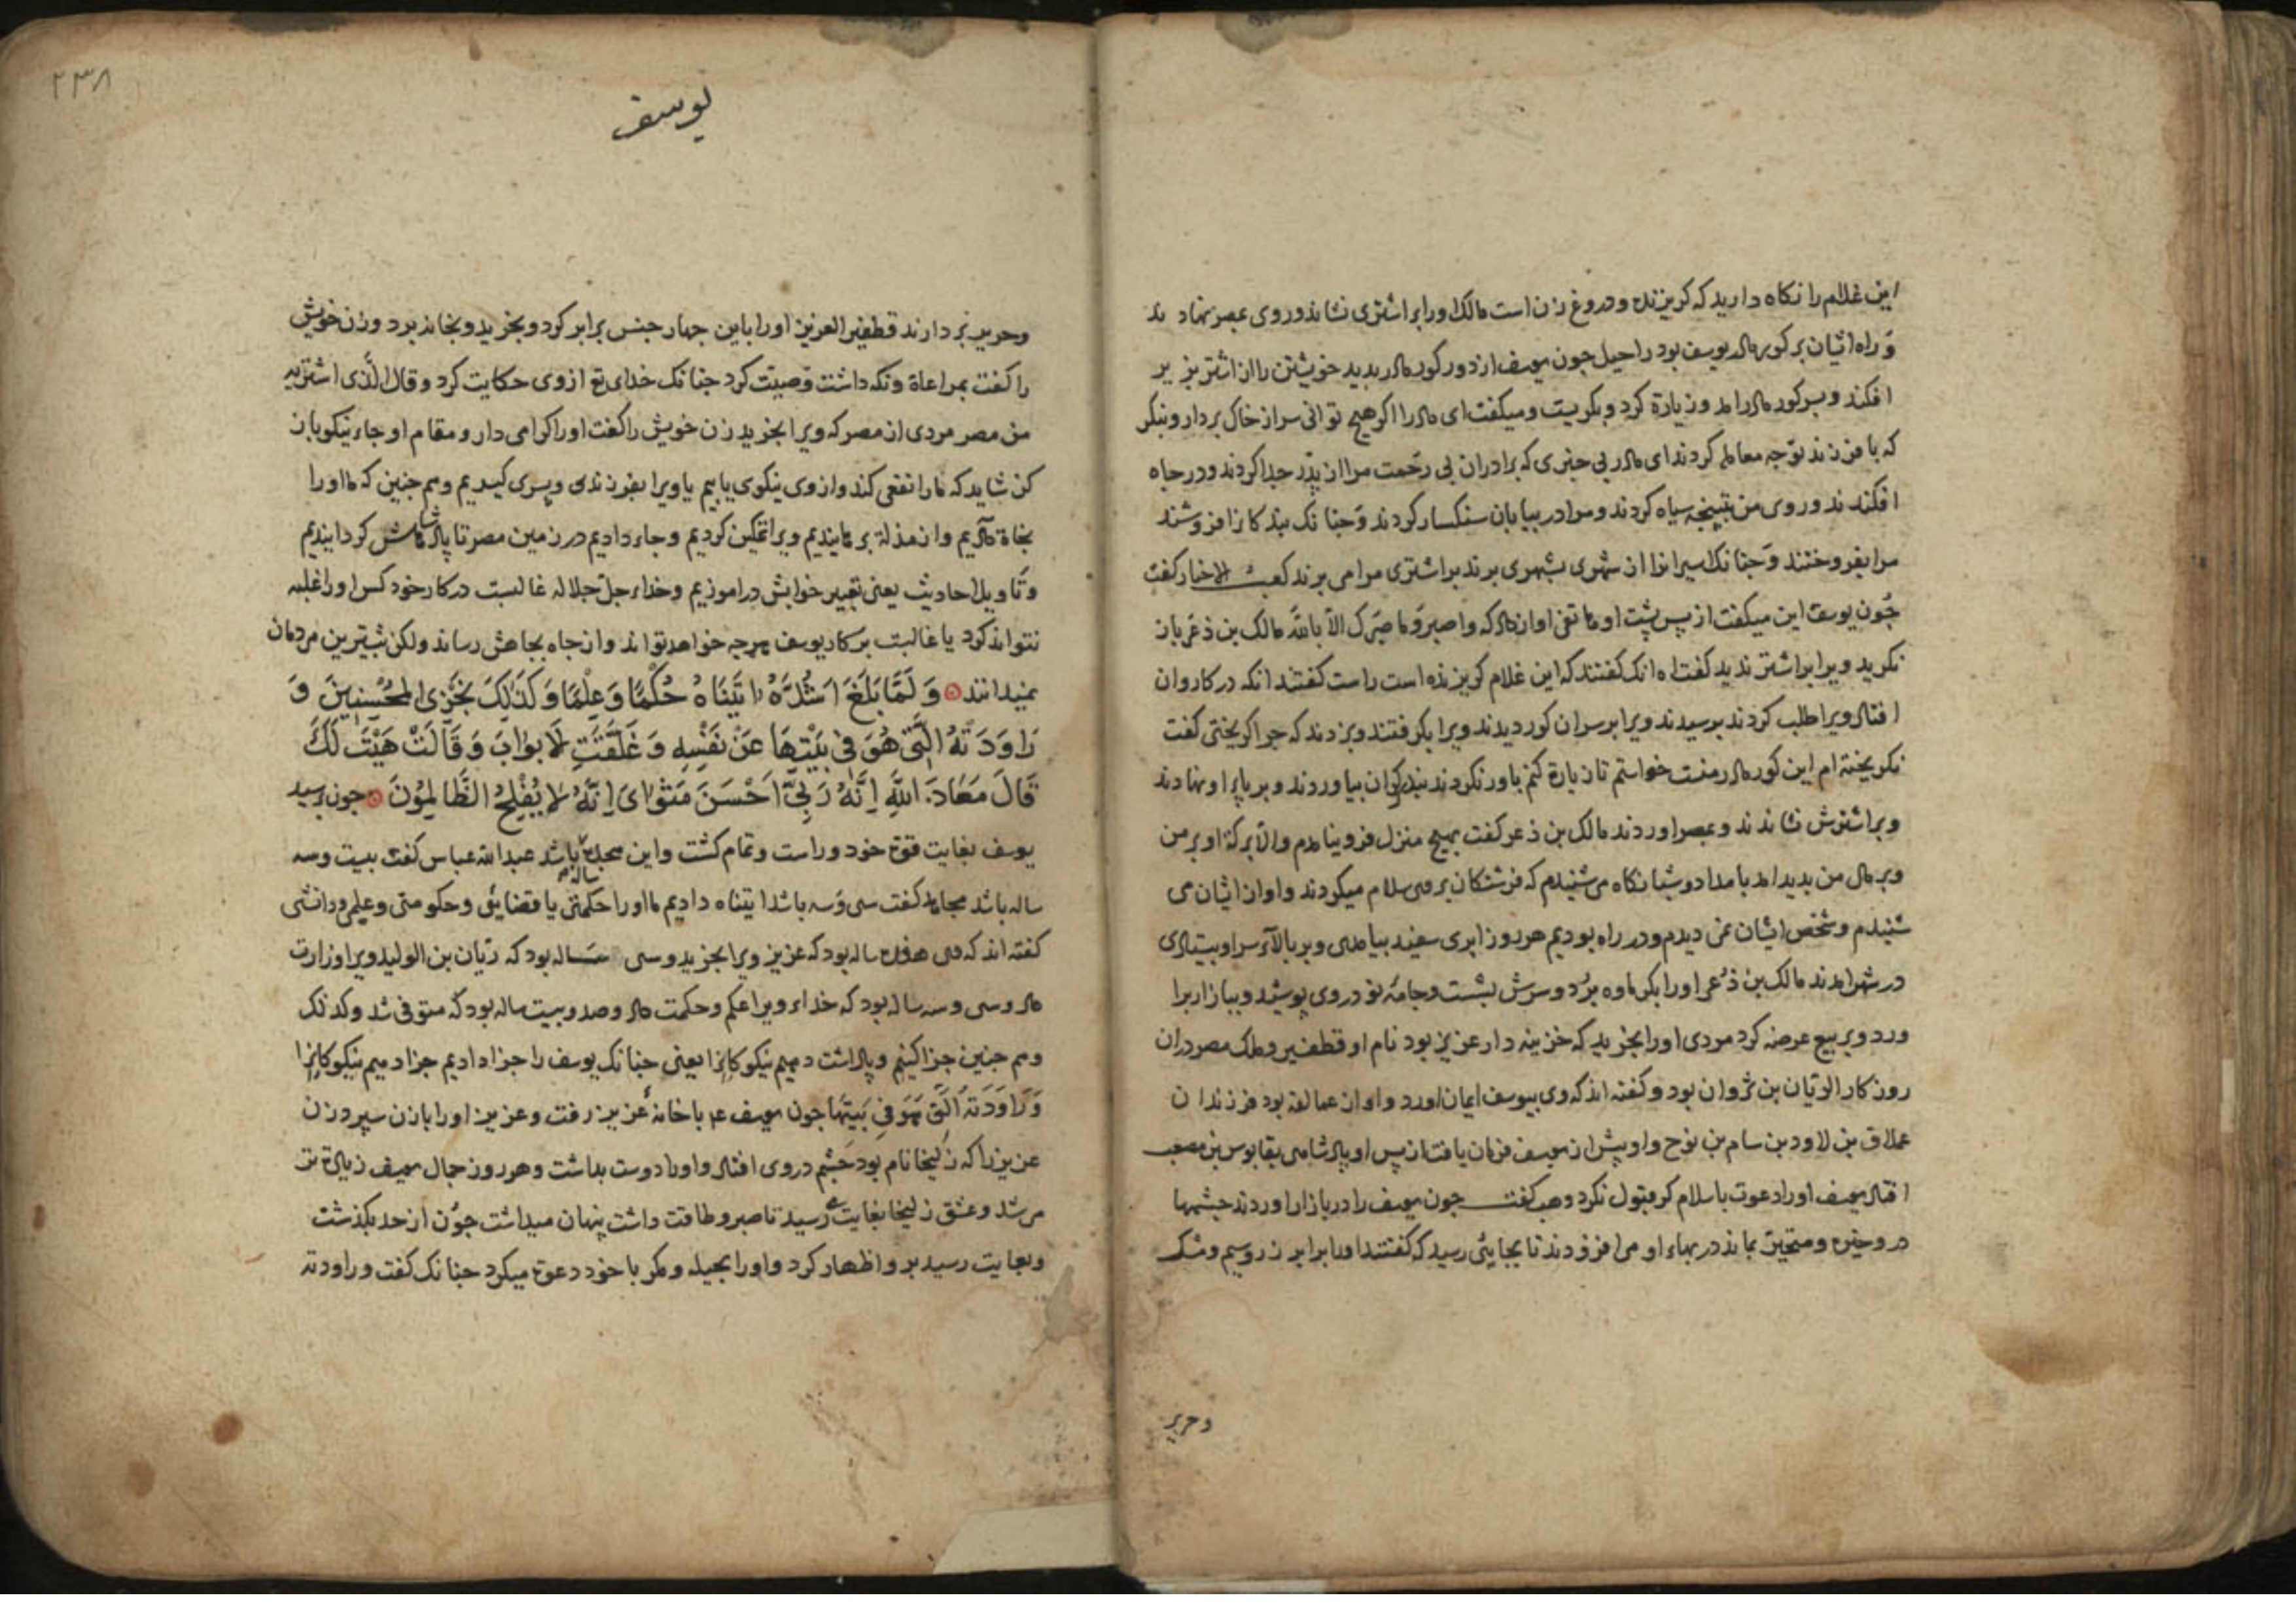 این غلام را نکاه دارید که کریزنده و دروغ زن است مالک اورا بر اشتری نشاند و روی بمصر نهاد
و راه ایشان بر کور مادر یوسف بود راحیل جون یوسف از دور کور مادر بدید خویشتن را از اشتر بزیر
افکند و بسر کور مادر امد و زیارة کرد و بکریست و میکفت ای مادر اکر هیج توانی سر از خاک بردار و بنکر
که با فرزند تو جه معامله کردند ای مادر بی خبری که برادران بی رحمت مرا از پدر جدا کردند و در جاه
افکندند و روی من بتبنجه سیاه کردند و مرا در بیابان سنکسار کردند و جنانک بندکانرا فروشند
مرا بفروختند و جنانک اسیرانرا از شهری بشهری برند بر اشتری مرا می برند کعب الاخبار کفت
جون یوسف این میکفت از پس پشت او هاتفی اواز داد که واصبر وما صبرک الا بالله مالک بن ذعر باز
نکرید ویرا بر اشتر ندید کفت اه انک کفتند که این غلام کریزنده است راست کفتند انکه در کاروان
افتاد ویرا طلب کردند برسیدند ویرا بر سر ان کور دیدند ویرا بکرفتند و بزدند که جرا کریختی کفت
نکریخته ام این کور مادر منست خواستم تا زیارة کنم باور نکردند بند کران بیاوردند و بر پای او نهادند
و بر اشترش نشاندند و بمصر اوردند مالک بن ذعر کفت بهیج منزل فرو نیامدم والا برکة او بر من
و بر مال من بدید امد بامداد و شبانکاه می شنیدم که فرشتکان بر وی سلام میکردند و اواز ایشان می
شنیدم و شخص ایشان نمی دیدم و در راه بودیم هر روز ابری سفید بیامدی و بر بالای سر او بیستادی
در شهر امدند مالک بن ذعر اورا بکرماوه برد و سرش بشست و جامهٔ نو در وی پوشید و ببازار برا
ورد و بر بیع عرضه کرد مردی اورا بخرید که خزینه دار عزیز بود نام او قطفیر و ملک مصر دران
روزکار الریان بن ثروان بود و کفته اند که وی بیوسف ایمان اورد و او از عمالقه بود فرزندان
عملاق بن لاود بن سام بن نوح و او پیش از یوسف فرمان یافت از پس او پادشاهی بقابوس بن مصعب
افتاد یوسف اورا دعوت باسلام کرد قبول نکرد وهب کفت جون یوسف را در بازار اوردند جشمها
در و خیره و متحیر بماند در بهاء او می افزودند تا بجایئی رسید که کفتند اورا برابر زر و سیم و مشک
وحریر
٢٣٨
یوسف
وحریر بردارند قطفیر العزیز اورا باین جهار جنس برابر کرد و بخرید و بخانه برد و زن خویش
را کفت بمراعاة و نکه داشت وصیت کرد جنانک خدای تع ازوی حکایت کرد وقال الذی اشتریه
من مصر مردی از مصر که ویرا بخرید زن خویش را کفت اورا کرامی دار و مقام او جاء نیکو باز
کن شاید که مارا نفعی کند و ازوی نیکوی یابیم یا ویرا بفرزندی و پسری کیریم و هم جنین که ما اورا
نجاة دادیم و از مذلة برهانیدیم ویرا تمکین کردیم و جاء دادیم در زمین مصر تا پادشاهش کردانیدیم
و تاویل احادیث یعنی تعبیر خوابش در اموزیم وخداء جل جلاله غالبست در کار خود کس اورا غلبه
نتواند کرد یا غالبت بر کار یوسف هرجه خواهد تواند و از جاه بجاهش رساند ولکن بیشترین مردمان
نمیدانند وَ لَمَّا بَلَغَ اَشُدَّهُ اتَینَاهُ حُکْمًا وَ عِلْمًا وَ کَذَلِکَ نَجْزِی المُحْسِنِینَ وَ
رَاوَدَتْهُ الَّتِی هُوَ فِی بَیْتِهَا عَنْ نَفْسِهِ وَ غَلَّقَتِ لَابوَابَ وَ قَالَتْ هَیْتَ لَکَ
قَالَ مَعَاذَ اللَّهِ اِنَّهُ رَبِّی اَحْسَنَ مَثْوَایَ اِنَّهُ لَا یُفْلِحُ الظَّالِمُونَ جون برسید
یوسف بغایت قوة خود و راست و تمام کشت و این هجده سالهم باشد عبدالله عباس کفت بیست و سه
ساله باشد مجاهد کفت سی و سه باشد اتیناه دادیم ما اورا حکمتی یا قضایئی و حکومتی و علمی و دانشی
کفته اند که وی هفده ساله بود که عزیز ویرا بخرید و سی ساله بود که ریان بن الولید ویرا وزارت
داد و سی و سه ساله بود که خداء ویرا علم و حکمت داد و صد و بیست ساله بود که متوفی شد وکذلک
و هم جنین جزا کنیم و پاداشت دهیم نیکوکانرا یعنی جنانک یوسف را جزا دادیم جزا دهیم نیکوکانرا
وَرَاوَدَتْهُ الَّتِی هُوَ فِی بَیْتِهَا جون یوسف عم باخانهٔ عزیز رفت و عزیز اورا بازن سپرد زن
عزیز را که زلیخا نام بود جشم در وی افتاد و اورا دوست بداشت و هر روز جمال یوسف زیادة تر
می شد و عشق زلیخا بغایت می رسید تا صبر و طاقت داشت پنهان میداشت جون از حد بکذشت
و بغایت رسید برو اظهار کرد و اورا بحیله و مکر باخود دعوة میکرد جنانک کفت وراودته